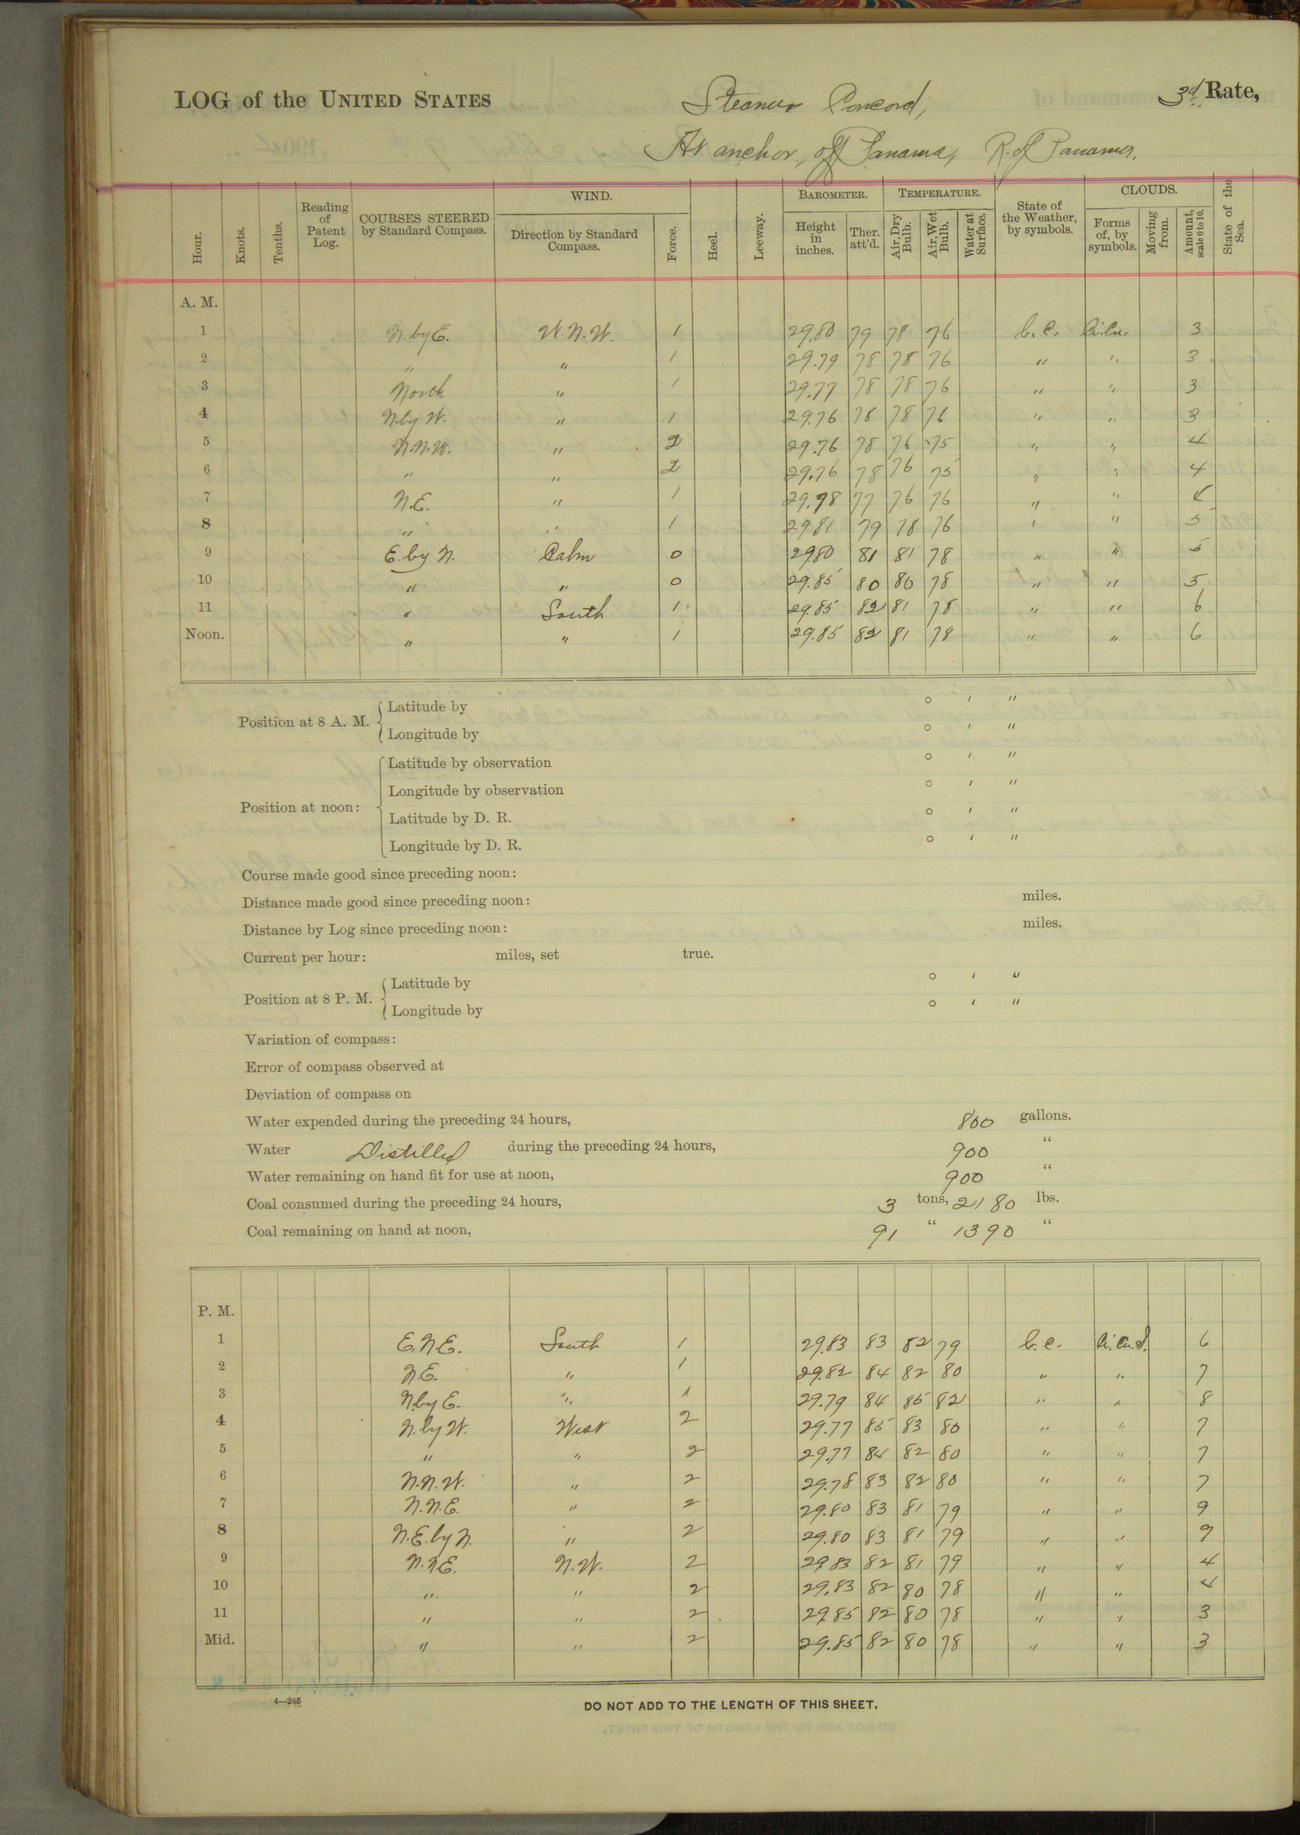 LOG of the UNITED STATES Steamer Concord, 3d. Rate,
At anchor, off Panama, R. of Panama.
Hour. Knots. Tenths. Reading of Patent Log. COURSES STEERED by Standard Compass. WIND. Direction by Standard Compass. Force. Heel. Leeway. BAROMETER. Height in inches. Ther. att'd. TEMPERATURE. Air, Dry Bulb. Air, Wet Bulb. Water at Surface. State of the Weather, by symbols. CLOUDS. Forms of, by symbols. Moving from. Amount, scale 0 to 10. State of the Sea.
A. M.
1 N. by E. W. N. W. 1 29.80 79 78 76 b. c. Ci. Cu. 3
2 " " 1 29.79 78 78 76 " " 3
3 North " 1 29.77 78 78 76 " " 3
4 N. by W. " 1 29.76 78 78 76 " " 3
5 N. N. W. " 2 29.76 78 76 75 " " 4
6 " " 2 29.76 78 76 75 " " 4
7 N. E. " 1 29.78 77 76 76 " "
8 " " 1 29.81 79 78 76 " " 5
9 E. by N. Calm 0 29.80 81 81 78 " " 5
10 " " 0 29.85 80 80 78 " " 5
11 " South 1 29.85 82 81 78 " " 6
Noon. " " 1 29.85 82 81 78 " " 6
Position at 8 A. M. Latitude by ° ′ ″
Longitude by ° ′ ″
Position at noon: Latitude by observation ° ′ ″
Longitude by observation ° ′ ″
Latitude by D. R. ° ′ ″
Longitude by D. R. ° ′ ″
Course made good since preceding noon:
Distance made good since preceding noon: miles.
Distance by Log since preceding noon: miles.
Current per hour: miles, set true.
Position at 8 P. M. Latitude by ° ′ ″
Longitude by ° ′ ″
Variation of compass:
Error of compass observed at
Deviation of compass on
Water expended during the preceding 24 hours, 800 gallons.
Water Distilled during the preceding 24 hours, 900 "
Water remaining on hand fit for use at noon, 900 "
Coal consumed during the preceding 24 hours, 3 tons, 2180 lbs.
Coal remaining on hand at noon, 91 " 1390 "
P. M.
1 E. N. E. South 1 29.83 83 82 79 b. c. Ci. Cu. S. 6
2 N. E. " 1 29.82 84 82 80 " " 7
3 N. by E. " 1 29.79 84 85 82 " " 8
4 N. by W. West 2 29.77 85 83 80 " " 7
5 " " 2 29.77 84 82 80 " " 7
6 N. N. W. " 2 29.78 83 82 80 " " 7
7 N. N. E. " 2 29.80 83 81 79 " " 9
8 N. E. by N. " 2 29.80 83 81 79 " " 9
9 N. N. E. N. W. 2 29.83 82 81 79 " " 4
10 " " 2 29.83 82 80 78 " " 4
11 " " 2 29.85 82 80 78 " " 3
Mid. " " 2 29.85 82 80 78 " " 3
4—265
DO NOT ADD TO THE LENGTH OF THIS SHEET.